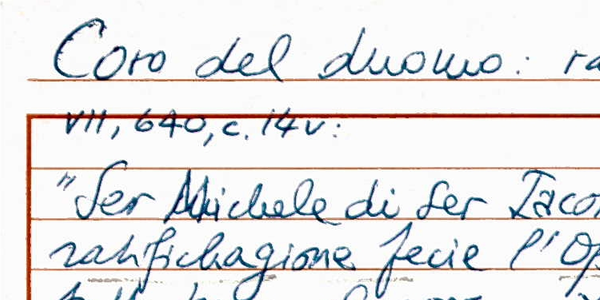 Coro del duomo: ra
VII, 640, c. 14v:
"Ser Michele di Ser Iaco
ratifichagione fecie l'Op